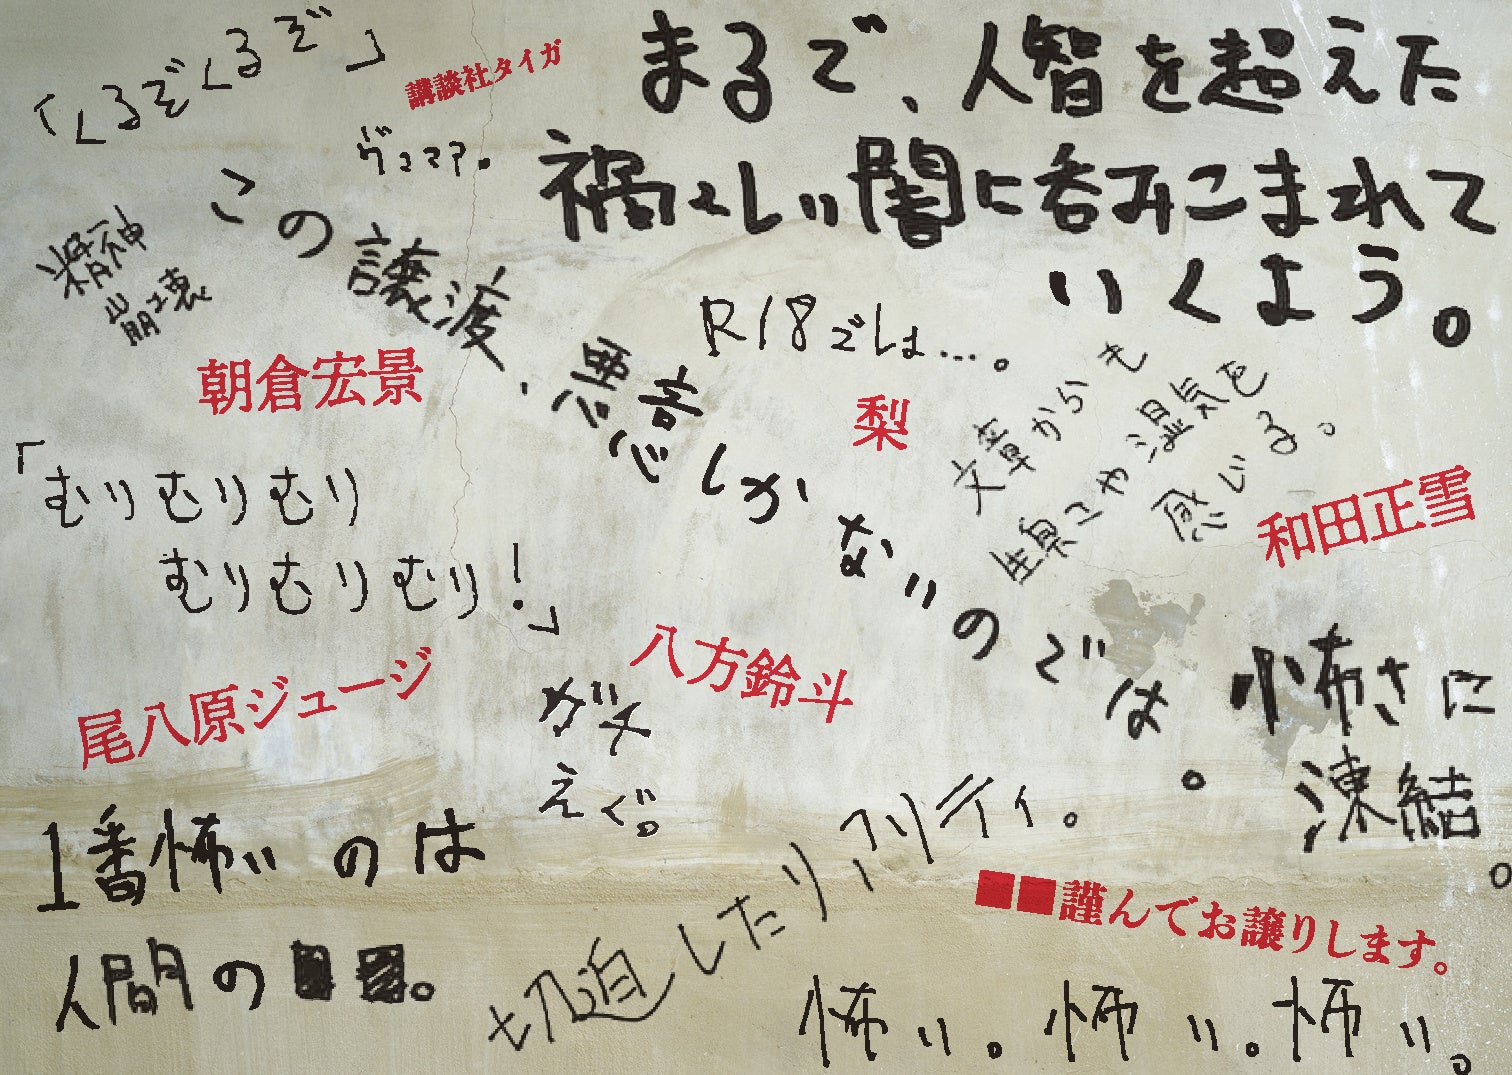 「くるぞくるぞ」
講談社タイガ
まるで、人智を超えた
禍々しい闇に呑みこまれて
いくよう。
ヴェママ。
精神
崩壊
この譲渡、悪意しかないのでは。
R18でしょ…。
朝倉宏景
梨
文章からも
生臭さや湿気を
感じる。
和田正雪
「むりむりむり
むりむりむり!」
八方鈴斗
尾八原ジュージ
ガチ
えぐ。
怖さに
凍結。
1番怖いのは
人間の■■。
切迫したリアリティ。
■■謹んでお譲りします。
怖い。怖い。怖い。